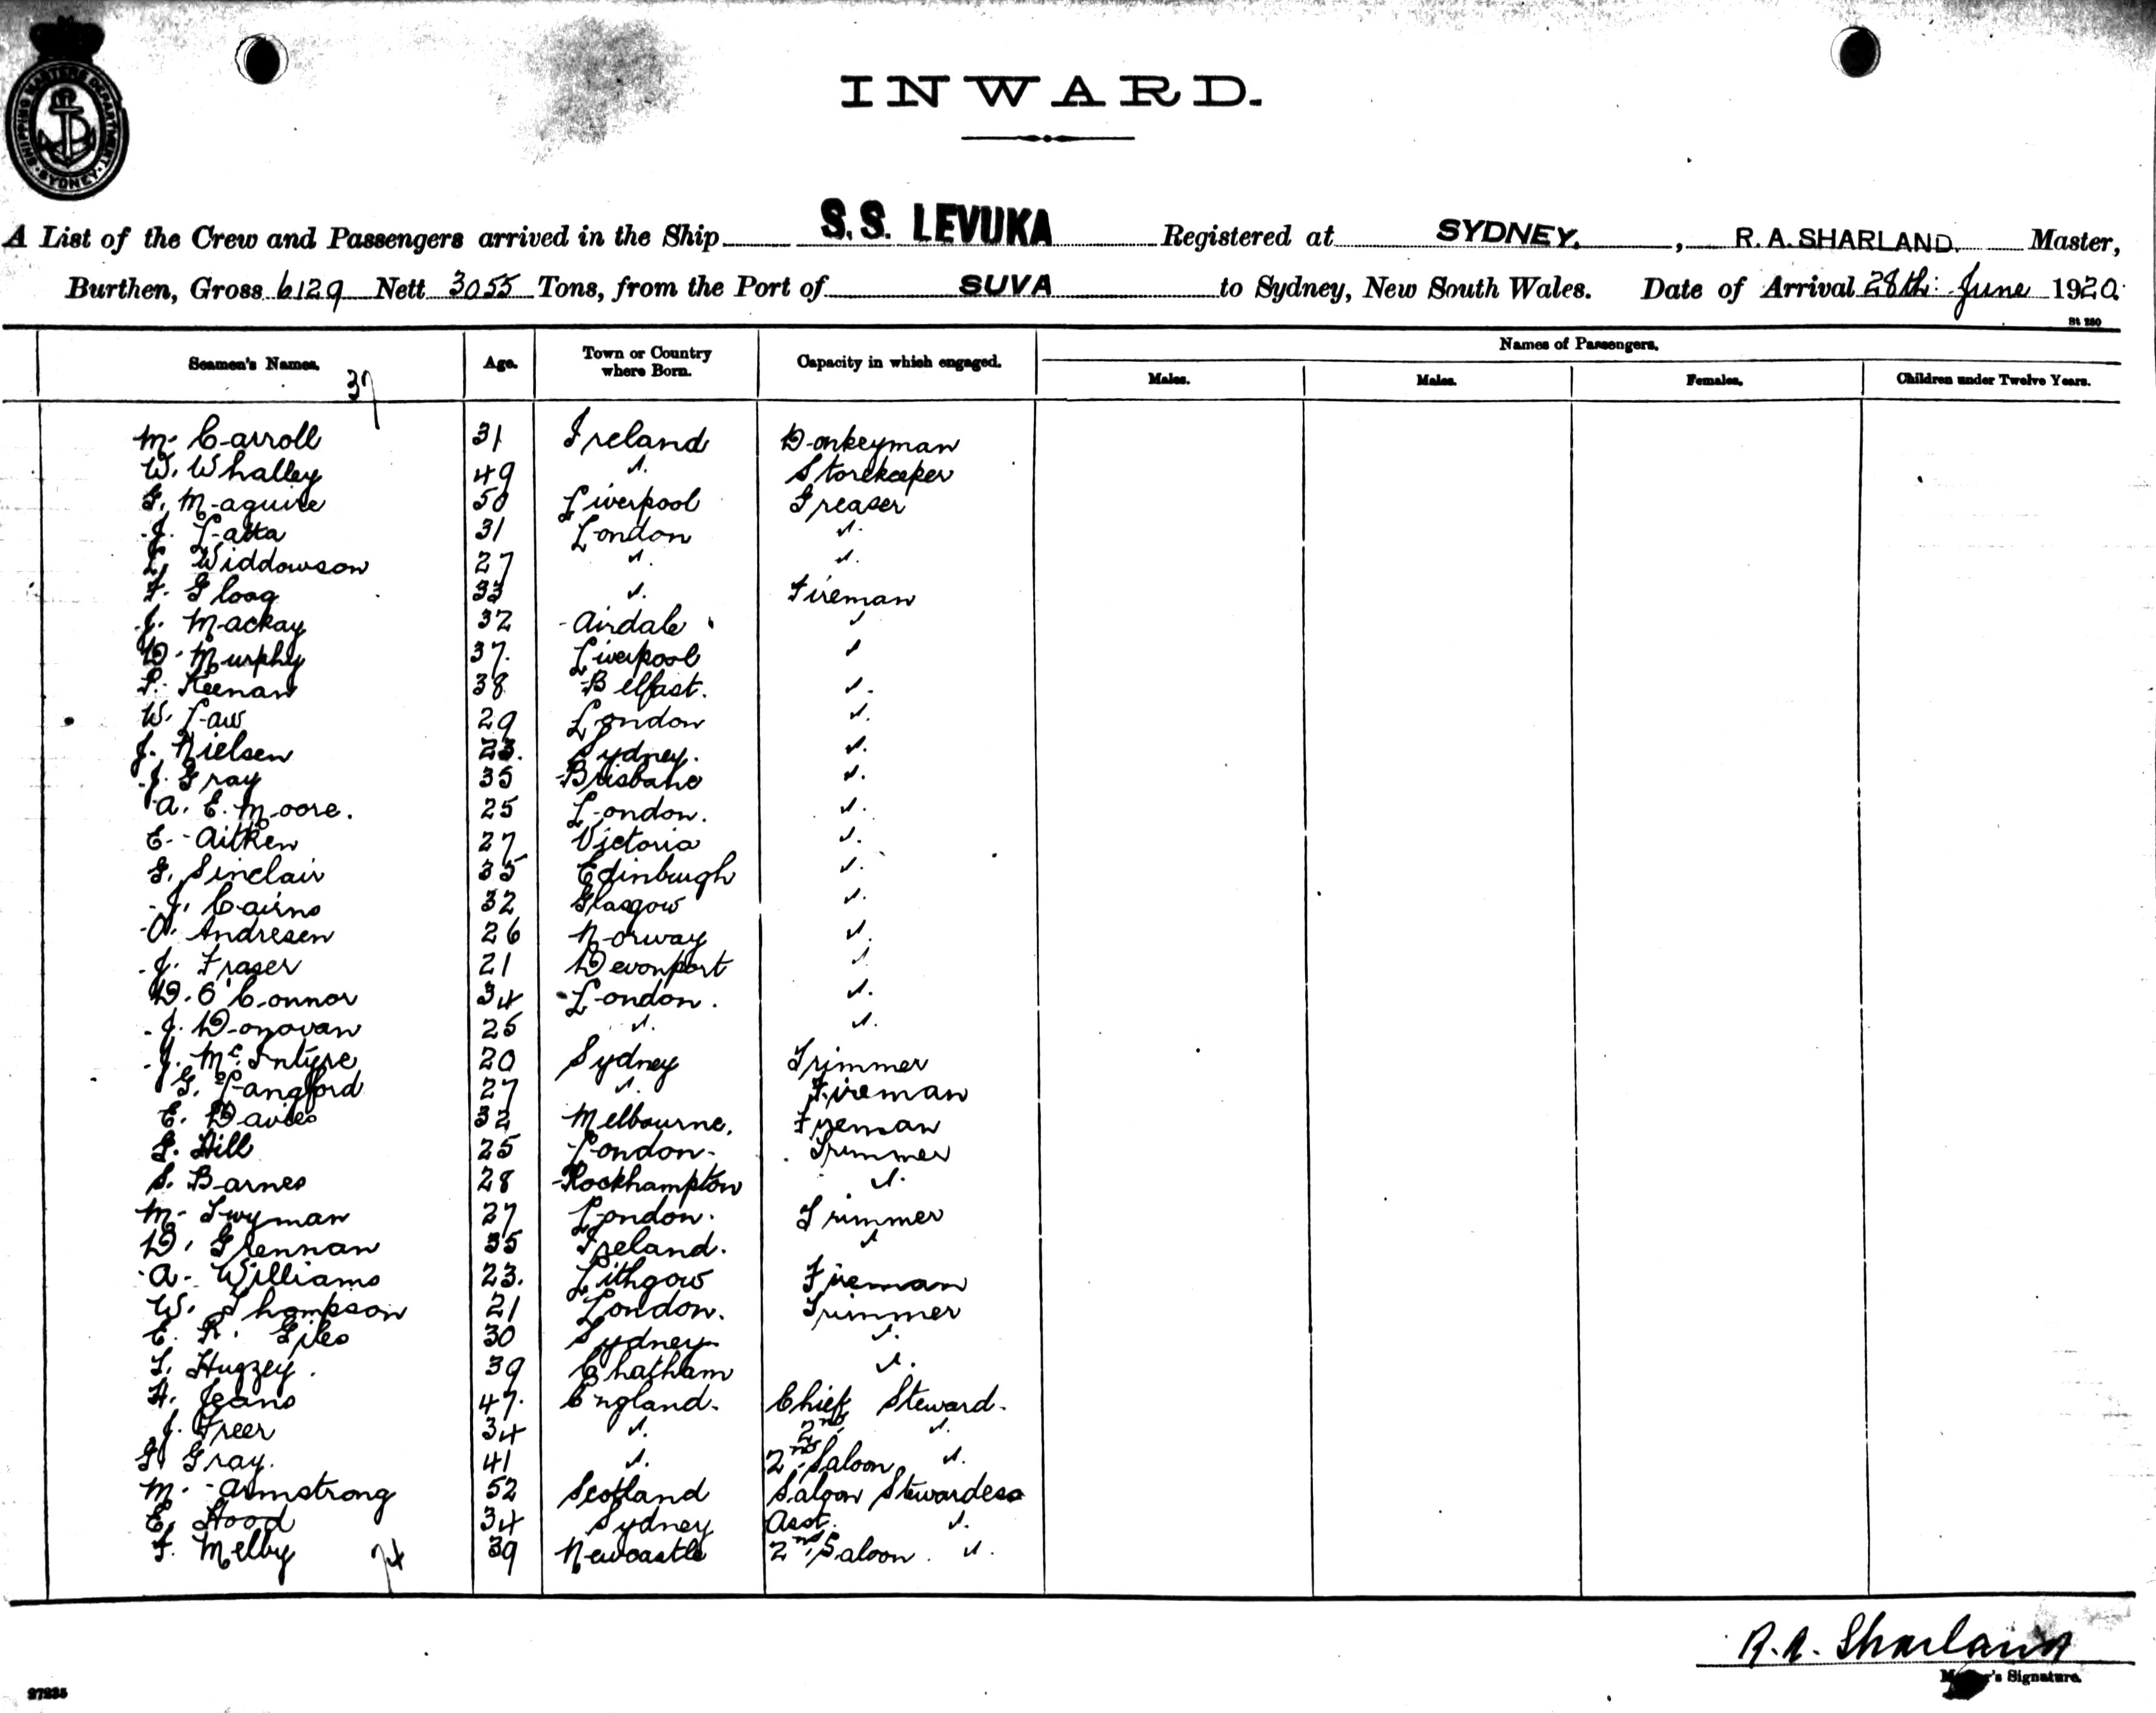 SHIPPING MASTER'S DEPARTMENT
SYDNEY
INWARD.
A List of the Crew and Passengers arrived in the Ship S.S. LEVUKA Registered at SYDNEY. , R. A. SHARLAND. Master,
Burthen, Gross 6129 Nett 3055 Tons, from the Port of SUVA to Sydney, New South Wales. Date of Arrival 28th June 1920.
St 280
Seamen's Names. Age. Town or Country where Born. Capacity in which engaged. Names of Passengers.
Males. Males. Females. Children under Twelve Years.
37
M. Carroll 31 Ireland Donkeyman
W. Whalley 49 " Storekeeper
G. Maguire 50 Liverpool Greaser
J. Latta 31 London "
L. Widdowson 27 " "
F. Gloag 33 " Fireman
J. Mackay 32 Airdale "
D. Murphy 37. Liverpool "
P. Keenan 38 Belfast. "
W. Law 29 London "
J. Nielsen 23. Sydney. "
J. Gray 35 Brisbane "
A. E. Moore. 25 London. "
E. Aitken 27 Victoria "
G. Sinclair 35 Edinburgh "
J. Cairns 32 Glasgow "
O. Andresen 26 Norway "
J. Fraser 21 Devonport "
D. O'Connor 34 London. "
J. Donovan 25 " "
J. McIntyre 20 Sydney Trimmer
G. Langford 27 " Fireman
E. Davies 32 Melbourne. Fireman
G. Hill 25 London Trimmer
S. Barnes 28 Rockhampton "
M. Twyman 27 London. Trimmer
D. Grennan 35 Ireland. "
A. Williams 23. Lithgow Fireman
W. Thompson 21 London. Trimmer
E. R. Giles 30 Sydney "
L. Hugzey. 39 Chatham "
H. Jeans 47. England. Chief Steward.
J. Freer 34 " 2nd "
G. Gray. 41 " 2nd Saloon "
M. Armstrong 52 Scotland Saloon Stewardess
E. Hood 34 Sydney Asst. "
F. Melby 39 Newcastle 2nd Saloon. "
74
R. A. Sharland
Master's Signature.
27235